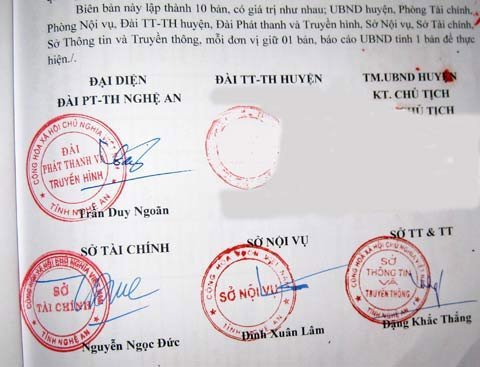 Biên bản này lập thành 10 bản, có giá trị như nhau; UBND huyện, Phòng Tài chính,
Phòng Nội vụ, Đài TT-TH huyện, Đài Phát thanh và Truyền hình, Sở Nội vụ, Sở Tài chính,
Sở Thông tin và Truyền thông, mỗi đơn vị giữ 01 bản, báo cáo UBND tỉnh 1 bản để thực
hiện./.
ĐẠI DIỆN
ĐÀI PT-TH NGHỆ AN
ĐÀI TT-TH HUYỆN
TM.UBND HUYỆN
KT. CHỦ TỊCH
CHỦ TỊCH
CỘNG HÒA XÃ HỘI CHỦ NGHĨA
ĐÀI
PHÁT THANH VÀ
TRUYỀN HÌNH
TỈNH NGHỆ AN
Trần Duy Ngoãn
SỞ TÀI CHÍNH
SỞ NỘI VỤ
SỞ TT & TT
SỞ
TÀI CHÍNH
TỈNH NGHỆ AN
SỞ NỘI VỤ
TỈNH NGHỆ AN
SỞ
THÔNG TIN
VÀ
TRUYỀN THÔNG
TỈNH NGHỆ AN
Nguyễn Ngọc Đức
Đinh Xuân Lâm
Đặng Khắc Thắng